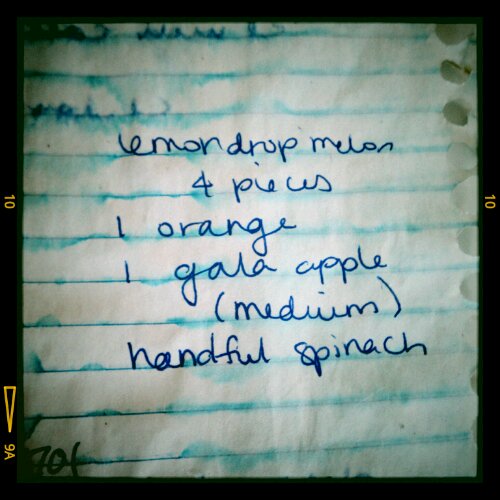 lemondrop melon
4 pieces
1 orange
1 gala apple
(medium)
handful spinach
10
10
9A